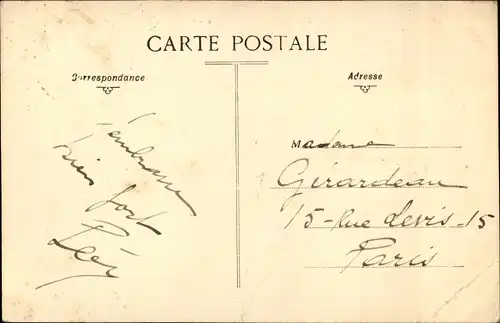 CARTE POSTALE
Correspondance
Adresse
J'embrasse
bien fort
Madame
Girardeau
15 - Rue Levis - 15
Paris